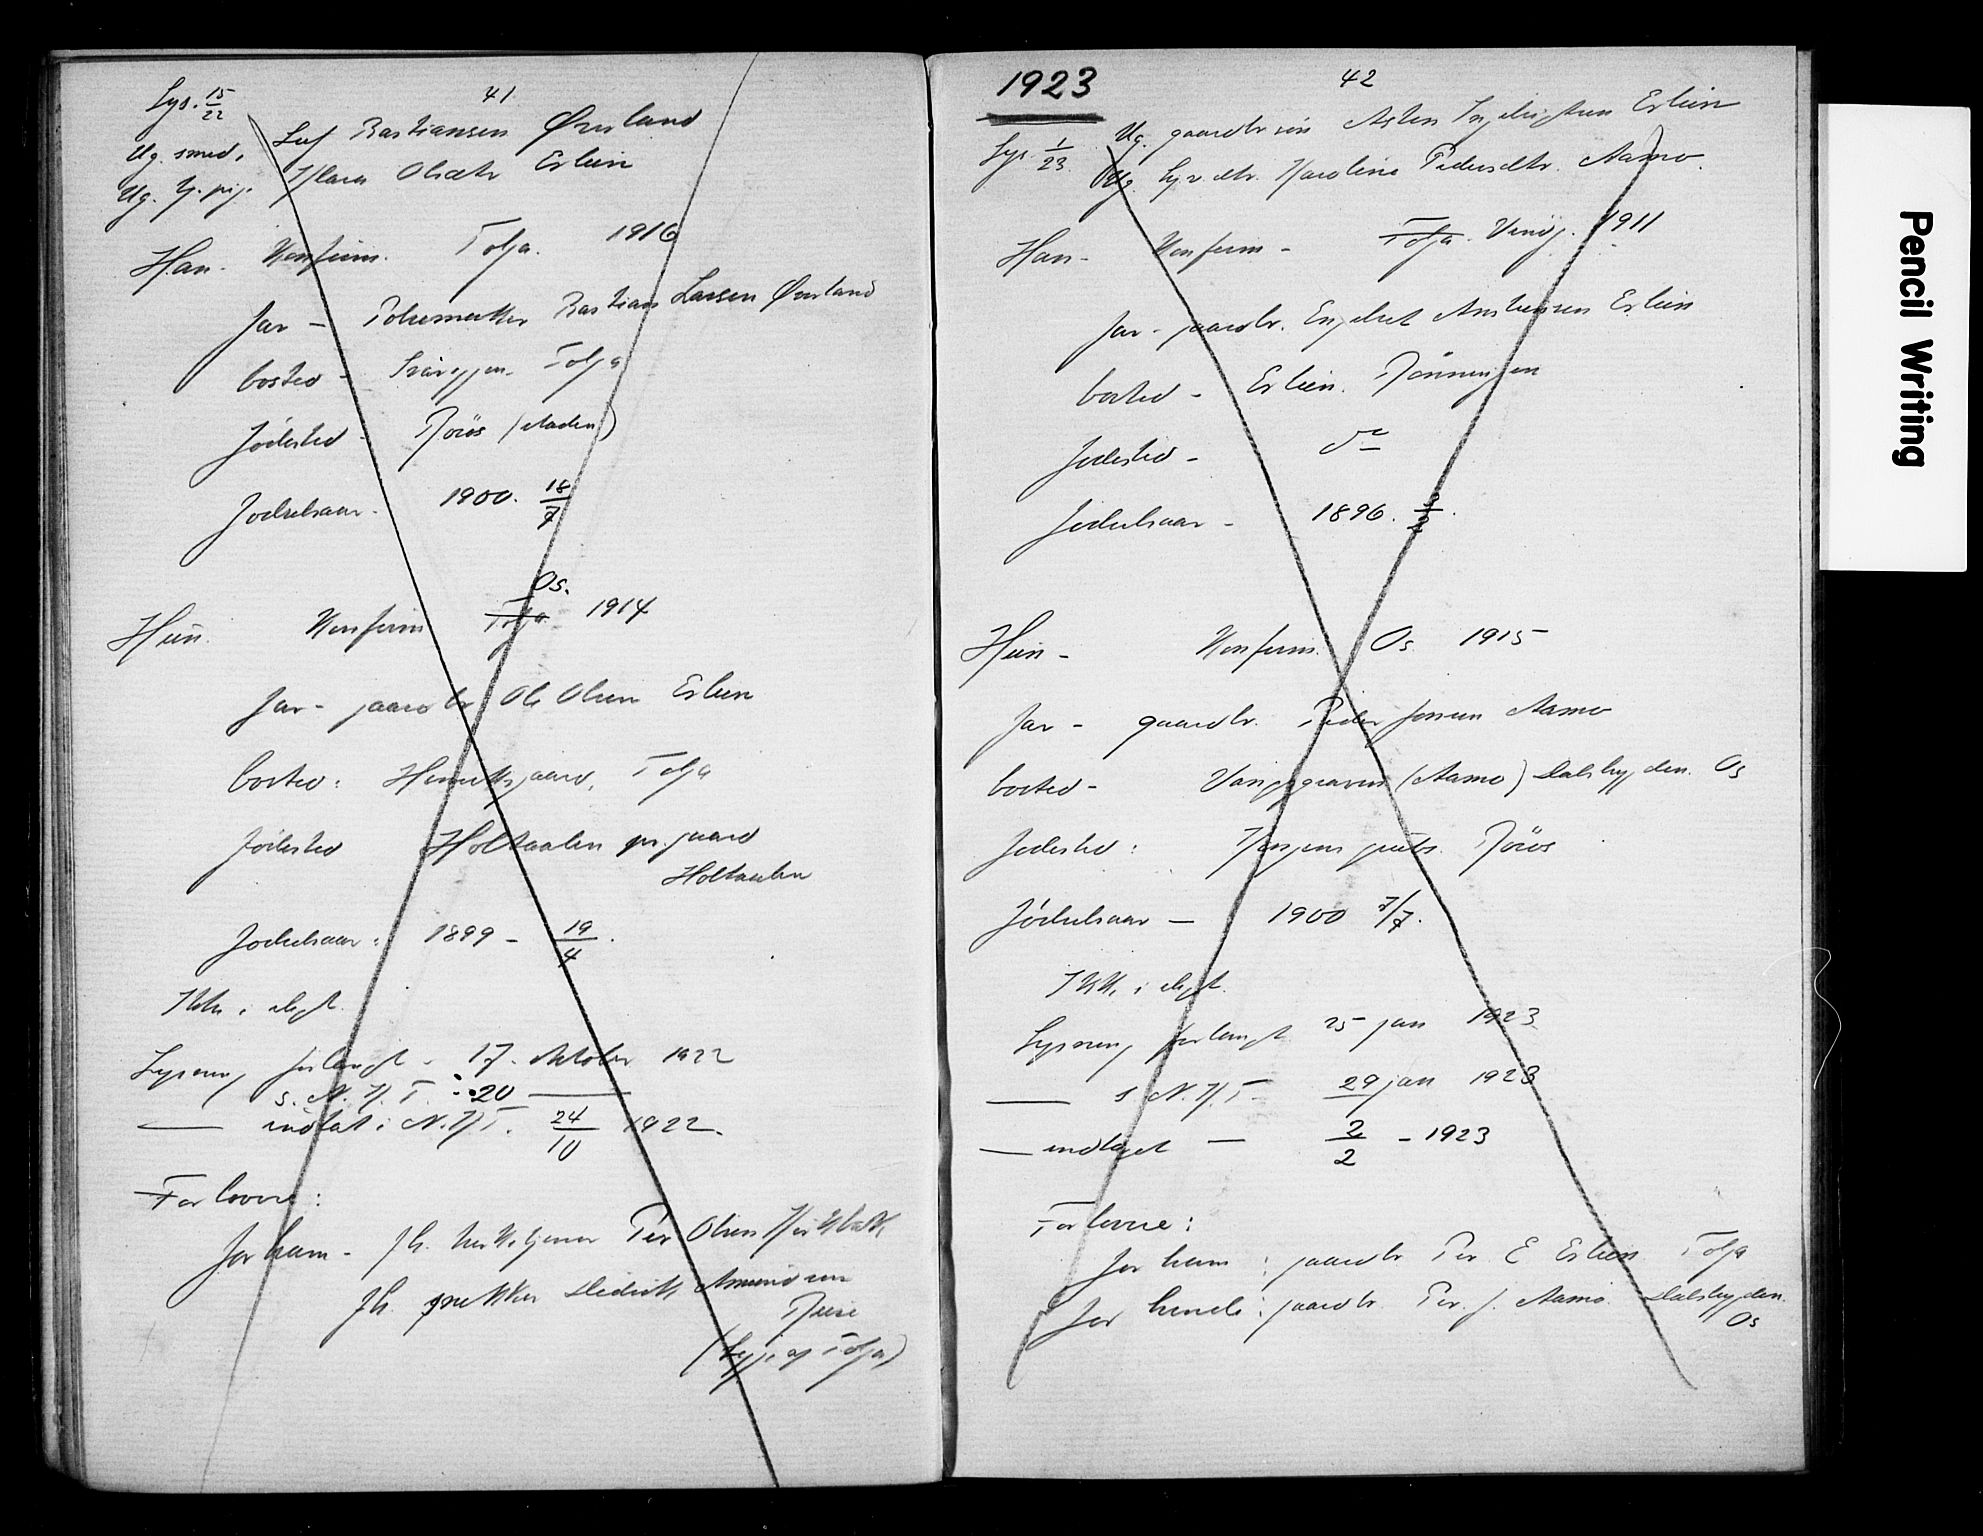 41
Lys. 15/22
Leif Bastiansen Øverland
Ug. smed.
Klara Olsdtr Erlien
Ug. h. pig.
Han. Konfirm. Tolga. 1916
Far - Bastian Larsen Øverland
bosted - Tolga
Fødested - Röros
Fødselsaar - 1900. 18/7
Os.
Hun. Konfirm Tolga 1914
Far - gaardbr Ole Olsen Erlien
bosted: Tolga
Fødested Holtaalen pr. gaard
Holtaalen
Fødselsaar: 1899 - 19/4
Ikke i slegt.
Lysning forlangt - 17. oktober 1922
s. N. K. T. - 20 —
— indtat i N. K. T. 24/10 1922.
Forlovere:
For ham - fh. kirketjener Per Olsen
fh. Didrik Amundsen
Tolga)
1923
42
Lys. 1/23.
Ug. gaardbr søn Asten Ingebrigtsen Erlien
Ug. gaardbr. dtr. Karoline Pedersdtr. Aamo.
Han - Konfirm - Tolga. Vinge. 1911
Far - gaardbr. Engebret Amundsen Erlien
bosted - Erlien. Rönningen
Fødested - do
Fødselsaar - 1896.
Hun - Konfirm. Os 1915
Far - gaardbr. Peder Jonsen Aamo
bosted - Vangsgraven (Aamo) Dalsbygden. Os
Fødested: Röros
Fødselsaar — 1900 7/7.
Ikke i slegt.
Lysning forlangt 25 jan 1923
— s N. K. T. 29 jan 1923
— indtaget — 2/2 - 1923
Forlovere:
For ham: gaardbr Per E Erlien Tolga
For hende: gaardbr. Per. J. Aamo Dalsbygden.
Os
Pencil Writing